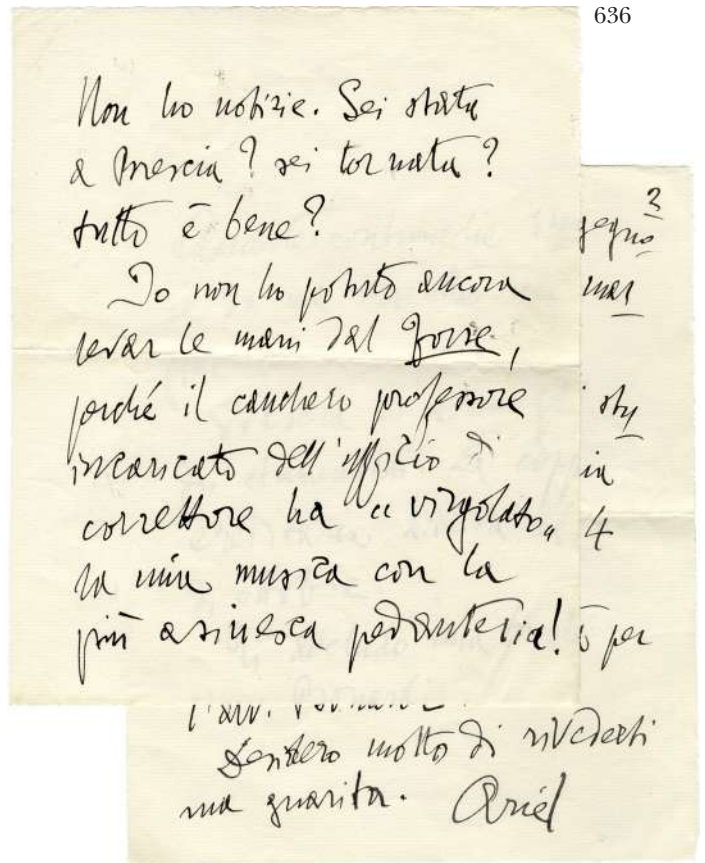 636
Non ho notizie. Sei stata
a Brescia? sei tornata?
tutto è bene?
Io non ho potuto ancora
levar le mani dal Forse,
perché il canchero professore
incaricato dell'uffizio di
correttore ha “virgolato„
la mia musica con la
più asinesca pedanteria!
2
segno
mar
sty
ia
4
ò per
l'avv.
Desidero molto di rivederti
ma guarita. Ariel